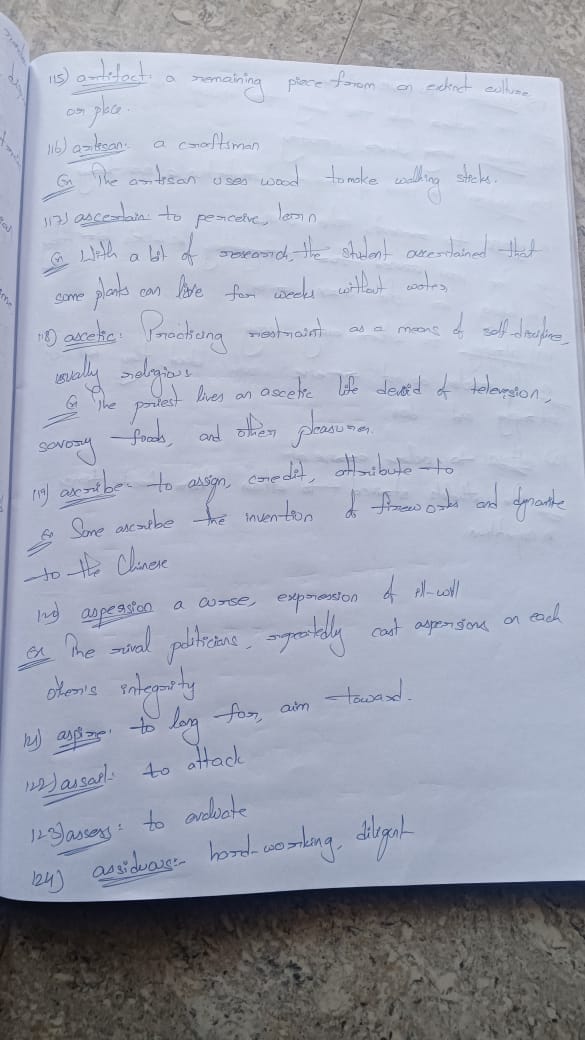 115) artifact: a remaining piece from an extinct culture
or place.
116) artisan: a craftsman
Ex The artisan uses wood to make walking sticks.
117) ascertain: to perceive, learn
Ex With a bit of research, the student ascertained that
some plants can live for weeks without water
118) ascetic: Practicing restraint as a means of self-discipline,
usually religious
Ex The priest lives an ascetic life devoid of television,
savory foods, and other pleasures.
119) ascribe- to assign, credit, attribute to
Ex Some ascribe the invention of fireworks and dynamite
to the Chinese
120) aspession a curse, expression of ill-will
Ex The rival politicians, repeatedly cast aspersions on each
other's integrity
121) aspire: to long for, aim toward.
122) assail: to attack
123) assess: to evaluate
124) assiduous:- hard-working, diligent